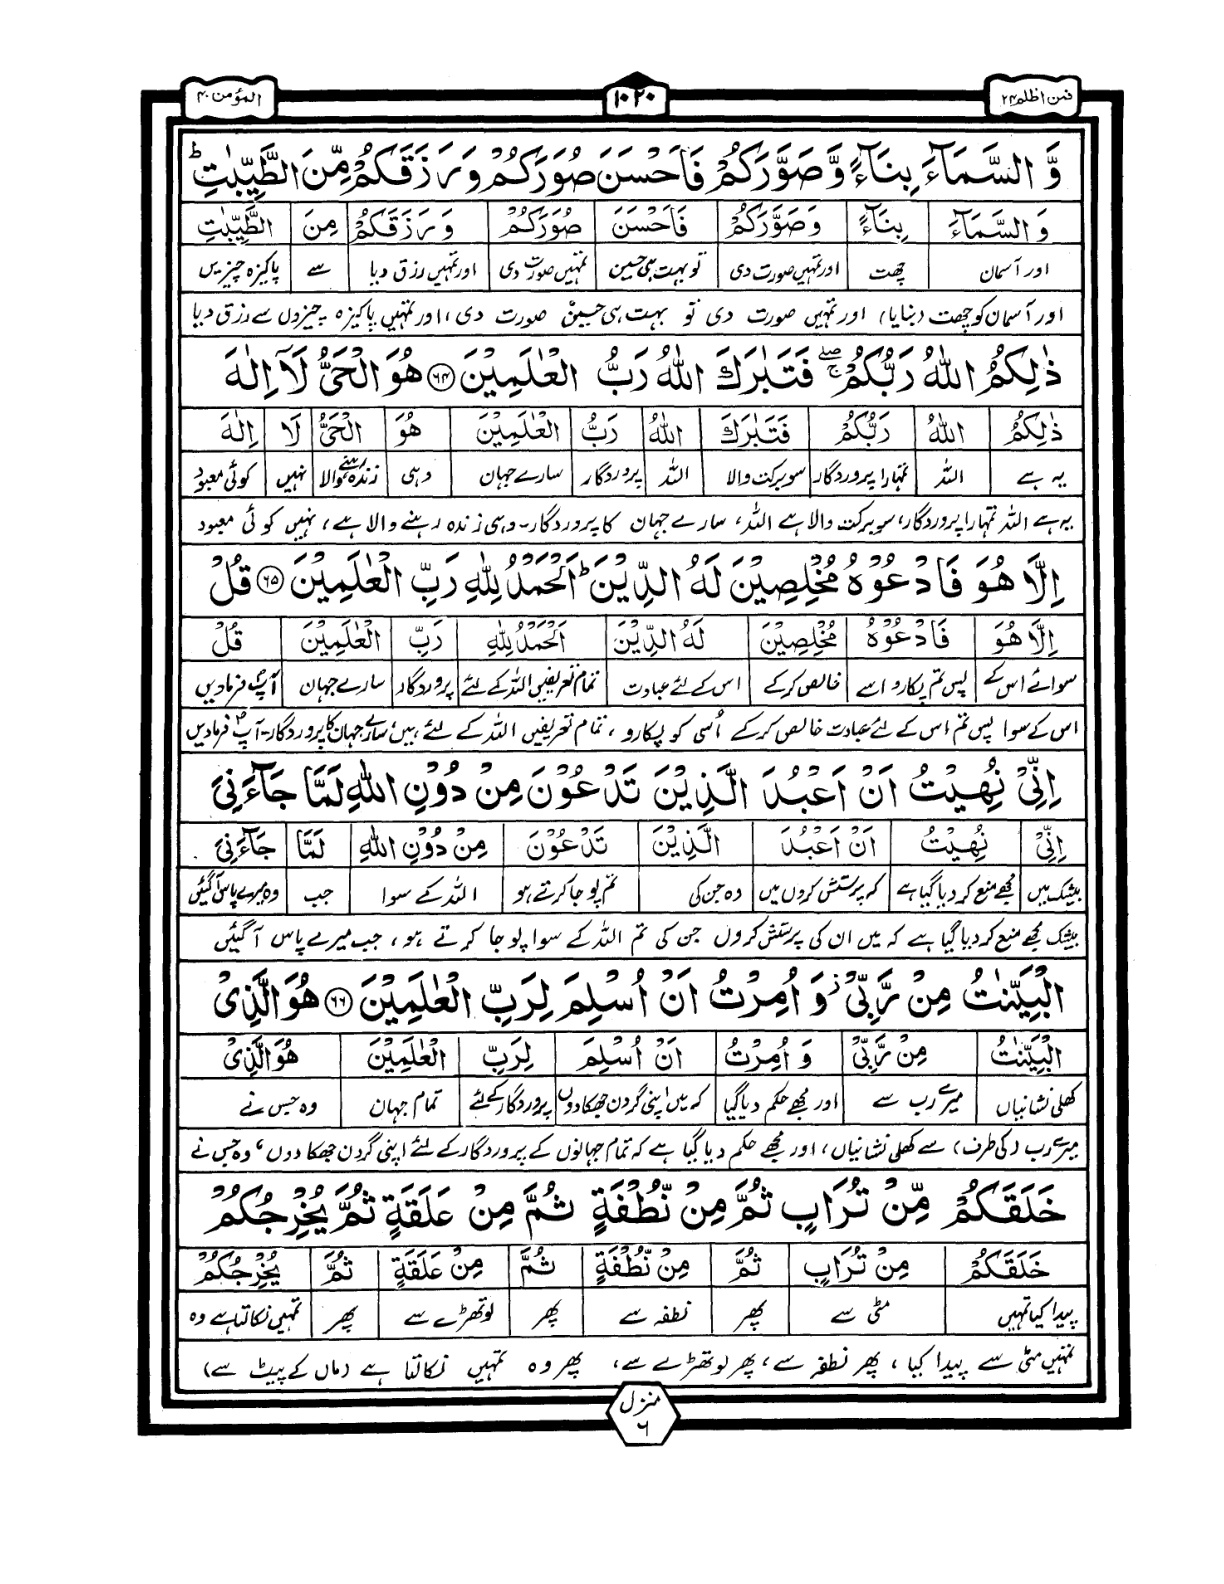 فمن اظلم ۲۴
۱۰۲۰
المؤمن ۴۰
وَّ السَّمَآءَ بِنَآءً وَّصَوَّرَكُمْ فَاَحْسَنَ صُوَرَكُمْ وَرَزَقَكُمْ مِّنَ الطَّيِّبٰتِ ؕ
وَ السَّمَآءَ بِنَآءً وَصَوَّرَكُمْ فَاَحْسَنَ صُوَرَكُمْ وَرَزَقَكُمْ مِنَ الطَّيِّبٰتِ
اور آسمان چھت اور تمہیں صورت دی تو بہت ہی حسین تمہیں صورت دی اور تمہیں رزق دیا سے پاکیزہ چیزیں
اور آسمان کو چھت (بنایا) اور تمہیں صورت دی تو بہت ہی حسین صورت دی، اور تمہیں پاکیزہ چیزوں سے رزق دیا
ذٰلِكُمُ اللّٰهُ رَبُّكُمْ ۖۚ فَتَبٰرَكَ اللّٰهُ رَبُّ الْعٰلَمِيْنَ ۶۴ هُوَ الْحَيُّ لَاۤ اِلٰهَ
ذٰلِكُمُ اللّٰهُ رَبُّكُمْ فَتَبٰرَكَ اللّٰهُ رَبُّ الْعٰلَمِيْنَ هُوَ الْحَيُّ لَاۤ اِلٰهَ
یہ ہے اللہ تمہارا پروردگار سو برکت والا اللہ پروردگار سارے جہان وہی زندہ رہنے والا نہیں کوئی معبود
یہ ہے اللہ تمہارا پروردگار، سو برکت والا ہے اللہ، سارے جہان کا پروردگار۔ وہی زندہ رہنے والا ہے، نہیں کوئی معبود
اِلَّا هُوَ فَادْعُوْهُ مُخْلِصِيْنَ لَهُ الدِّيْنَ ؕ اَلْحَمْدُ لِلّٰهِ رَبِّ الْعٰلَمِيْنَ ۶۵ قُلْ
اِلَّا هُوَ فَادْعُوْهُ مُخْلِصِيْنَ لَهُ الدِّيْنَ اَلْحَمْدُ لِلّٰهِ رَبِّ الْعٰلَمِيْنَ قُلْ
سوائے اس کے پس تم پکارو اسے خالص کرکے اس کے لئے عبادت تمام تعریفیں اللہ کے لئے پروردگار سارے جہان آپؐ فرمادیں
اس کے سوا پس تم اس کے لئے عبادت خالص کرکے اُسی کو پکارو، تمام تعریفیں اللہ کے لئے ہیں سارے جہان کا پروردگار۔ آپؐ فرمادیں
اِنِّيْ نُهِيْتُ اَنْ اَعْبُدَ الَّذِيْنَ تَدْعُوْنَ مِنْ دُوْنِ اللّٰهِ لَمَّا جَآءَنِيَ
اِنِّيْ نُهِيْتُ اَنْ اَعْبُدَ الَّذِيْنَ تَدْعُوْنَ مِنْ دُوْنِ اللّٰهِ لَمَّا جَآءَنِيَ
بیشک میں مجھے منع کردیا گیا ہے کہ پرستش کروں میں وہ جن کی تم پوجا کرتے ہو اللہ کے سوا جب وہ میرے پاس آگئیں
بیشک مجھے منع کردیا گیا ہے کہ میں ان کی پرستش کروں جن کی تم اللہ کے سوا پوجا کرتے ہو، جب میرے پاس آگئیں
الْبَيِّنٰتُ مِنْ رَّبِّيْ ۫ وَ اُمِرْتُ اَنْ اُسْلِمَ لِرَبِّ الْعٰلَمِيْنَ ۶۶ هُوَ الَّذِيْ
الْبَيِّنٰتُ مِنْ رَّبِّيْ وَ اُمِرْتُ اَنْ اُسْلِمَ لِرَبِّ الْعٰلَمِيْنَ هُوَ الَّذِيْ
کھلی نشانیاں میرے رب سے اور مجھے حکم دیا گیا کہ میں اپنی گردن جھکادوں پروردگار کے لئے تمام جہان وہ جس نے
میرے رب (کی طرف) سے کھلی نشانیاں، اور مجھے حکم دیا گیا ہے کہ تمام جہانوں کے پروردگار کے لئے اپنی گردن جھکادوں، وہ جس نے
خَلَقَكُمْ مِّنْ تُرَابٍ ثُمَّ مِنْ نُّطْفَةٍ ثُمَّ مِنْ عَلَقَةٍ ثُمَّ يُخْرِجُكُمْ
خَلَقَكُمْ مِنْ تُرَابٍ ثُمَّ مِنْ نُّطْفَةٍ ثُمَّ مِنْ عَلَقَةٍ ثُمَّ يُخْرِجُكُمْ
پیدا کیا تمہیں مٹی سے پھر نطفہ سے پھر لوتھڑے سے پھر تمہیں نکالتا ہے وہ
تمہیں مٹی سے پیدا کیا، پھر نطفہ سے، پھر لوتھڑے سے، پھر وہ تمہیں نکالتا ہے (ماں کے پیٹ سے)
منزل
۶